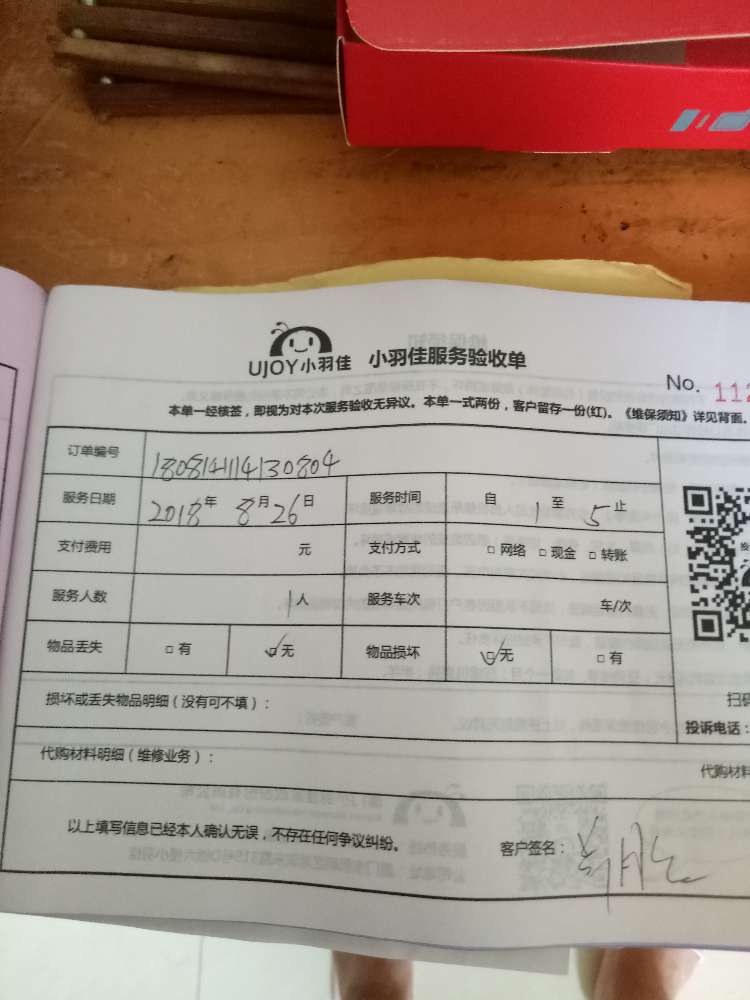 UJOY小羽佳 小羽佳服务验收单
No. 112
本单一经核签，即视为对本次服务验收无异议。本单一式两份，客户留存一份(红)。《维保须知》详见背面。
订单编号 180814114130804
服务日期 2018年 8月26日 服务时间 自 1 至 5 止
支付费用 元 支付方式 □ 网络 □ 现金 □ 转账
服务人数 1人 服务车次 车/次
物品丢失 □ 有 ☑ 无 物品损坏 ☑ 无 □ 有
扫码
损坏或丢失物品明细（没有可不填）：
投诉电话：
代购材料明细（维修业务）：
代购材料
以上填写信息已经本人确认无误，不存在任何争议纠纷。 客户签名：